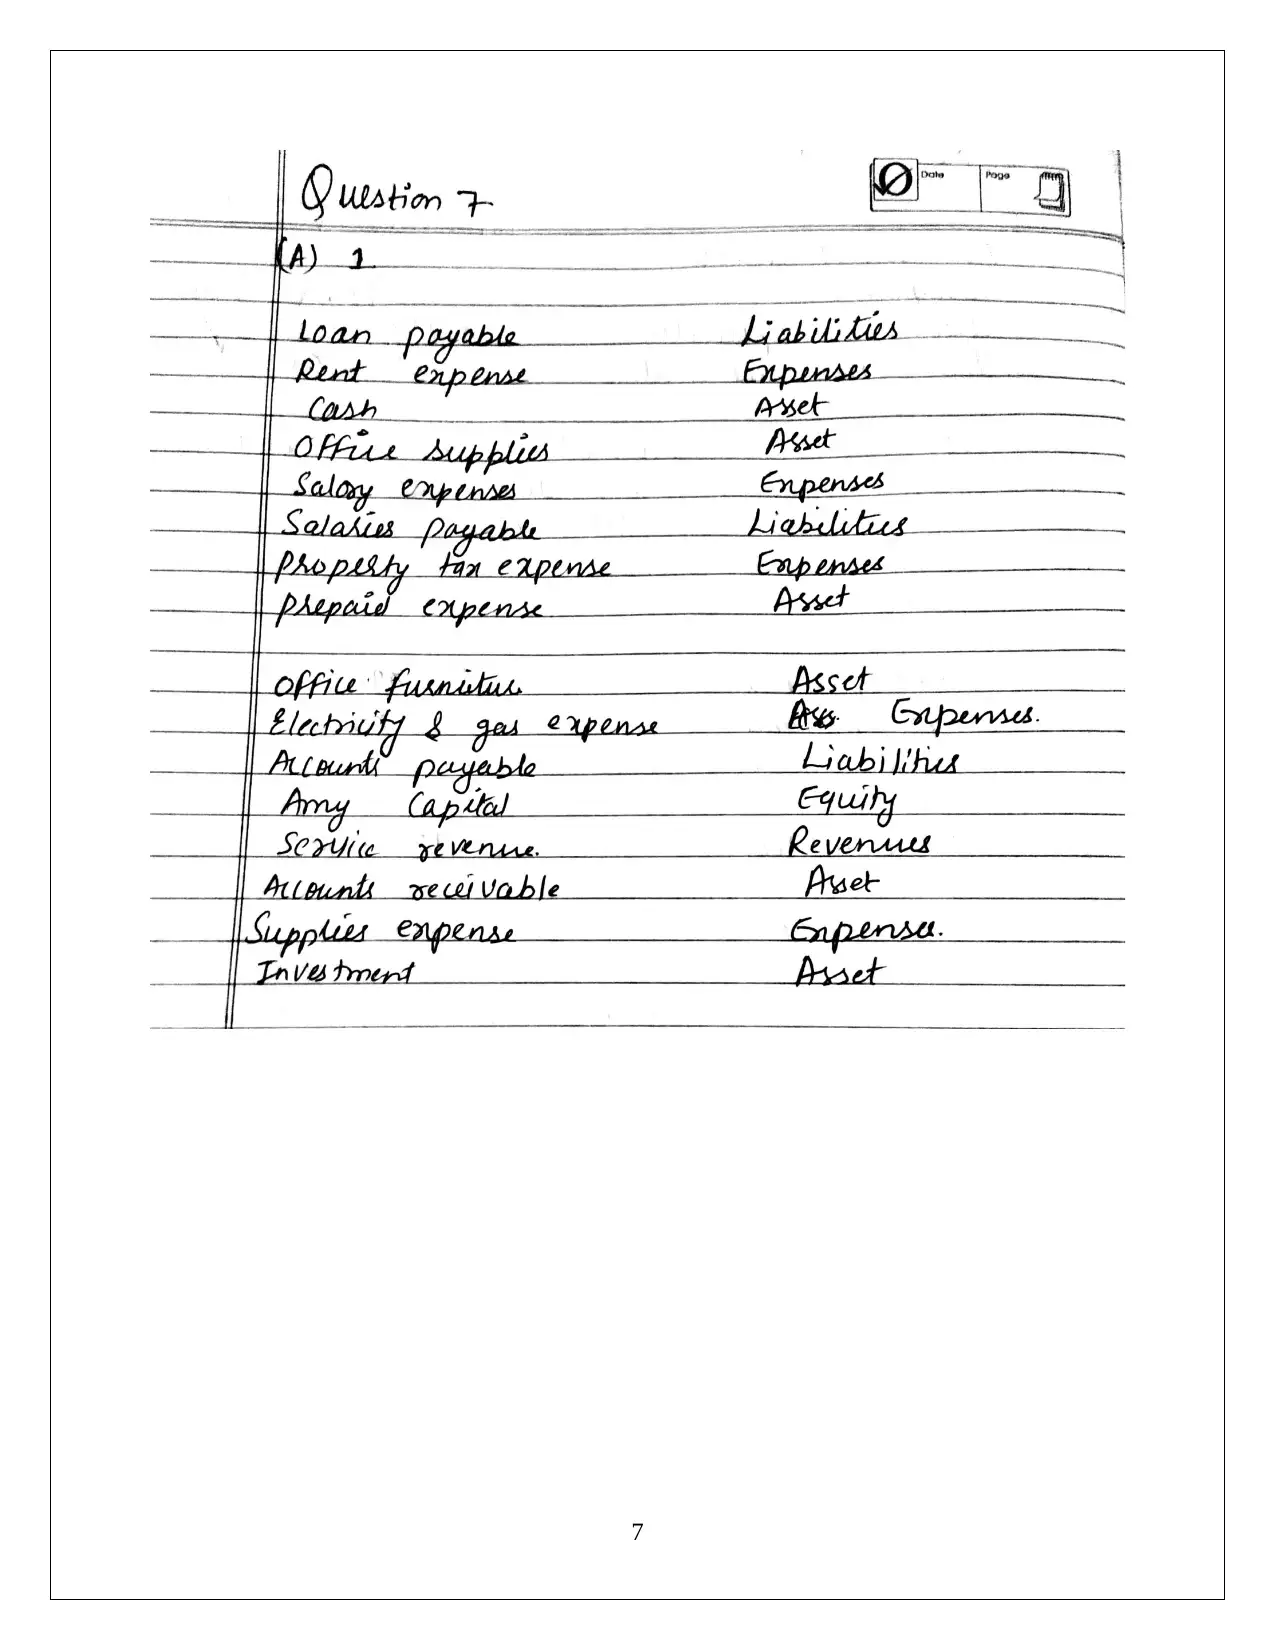 Question 7
Date Page
(A) 1
Loan payable Liabilities
Rent expense Expenses
Cash Asset
Office supplies Asset
Salary expenses Expenses
Salaries payable Liabilities
Property tax expense Expenses
Prepaid expense Asset
Office furniture Asset
Electricity & gas expense Expenses.
Accounts payable Liabilities
Amy Capital Equity
Service revenue. Revenues
Accounts receivable Asset
Supplies expense Expenses.
Investment Asset
7